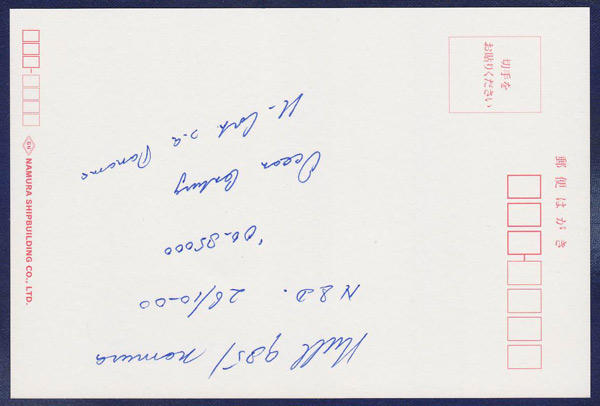 切手を
お貼りください
郵便はがき
NAMURA SHIPBUILDING CO., LTD.
s.a Panama
Ocean Century
'00-85000
26/10-00
Hull 985/ namura